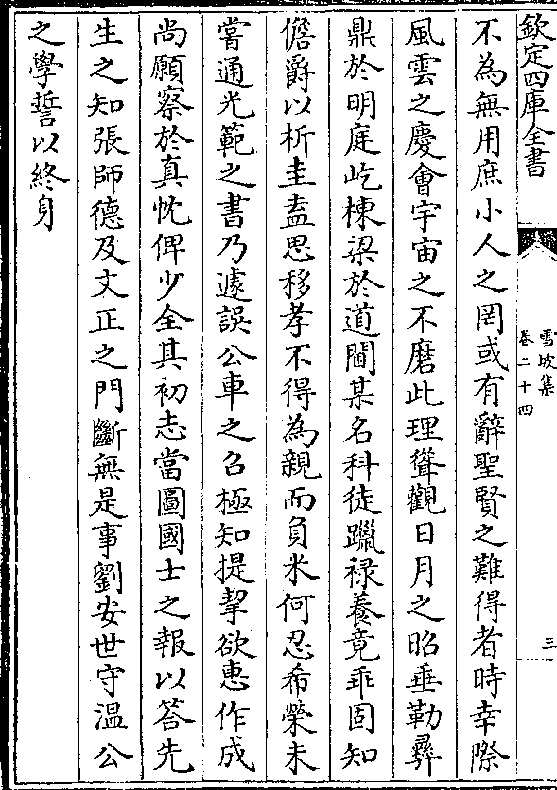 欽定四庫全書
雪坡集
卷二十四
三
不為無用庶小人之罔或有辭聖賢之難得者時幸際
風雲之慶會宇宙之不磨此理聳觀日月之昭垂勒彛
鼎於明庭屹棟梁於道閫某名科徒躐禄養竟乖固知
儋爵以析圭盍思移孝不得為親而負米何忍希榮未
嘗通光範之書乃遽誤公車之召極知提挈欲惠作成
尚願察於真忱俾少全其初志當圖國士之報以答先
生之知張師德及文正之門斷無是事劉安世守溫公
之學誓以終身